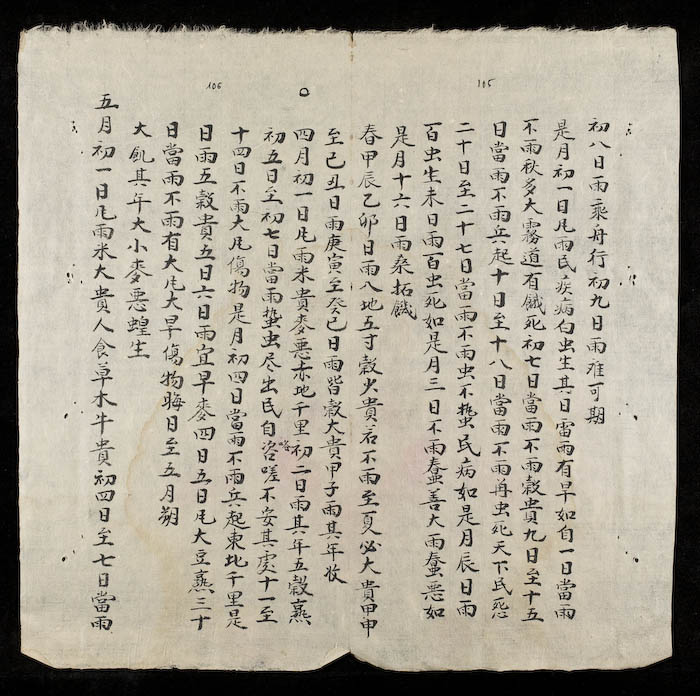 106
105
初八日雨乘舟行初九日雨难可期
是月初一日凨雨民疾病白虫生其日雷雨有旱如自一日當雨
不雨秋多大霧道有餓死初七日當雨不雨穀貴九日至十五
日當雨不雨兵起十日至十八日當雨不雨再虫死天下民愁
二十日至二十七日當雨不雨虫不蟄民病如是月辰日雨
百虫生未日雨百虫死如是月三日不雨蚕善大雨蚕惡如
是月十六日雨桑拓饑
春甲辰乙卯日雨入地五寸穀火貴若不雨至夏必大貴甲申
至己丑日雨庚寅至癸巳日雨皆穀大貴甲子雨其年收
四月初一日凨雨米貴麥惡赤地千里初二日雨其年五穀熹
初五日至初七日當雨蟄虫尽出民自咨嗟不安其處十一至
十四日不雨大凨傷物是月初四日當雨不雨兵起東北千里是
日雨五穀貴五日六日雨宜早麥四日五日凨大豆熹三十
日當雨不雨有大凨大旱傷物晦日至五月朔
大飢其年大小麥惡蝗生
五月初一日凨雨米大貴人食草木牛貴初四日至七日當雨